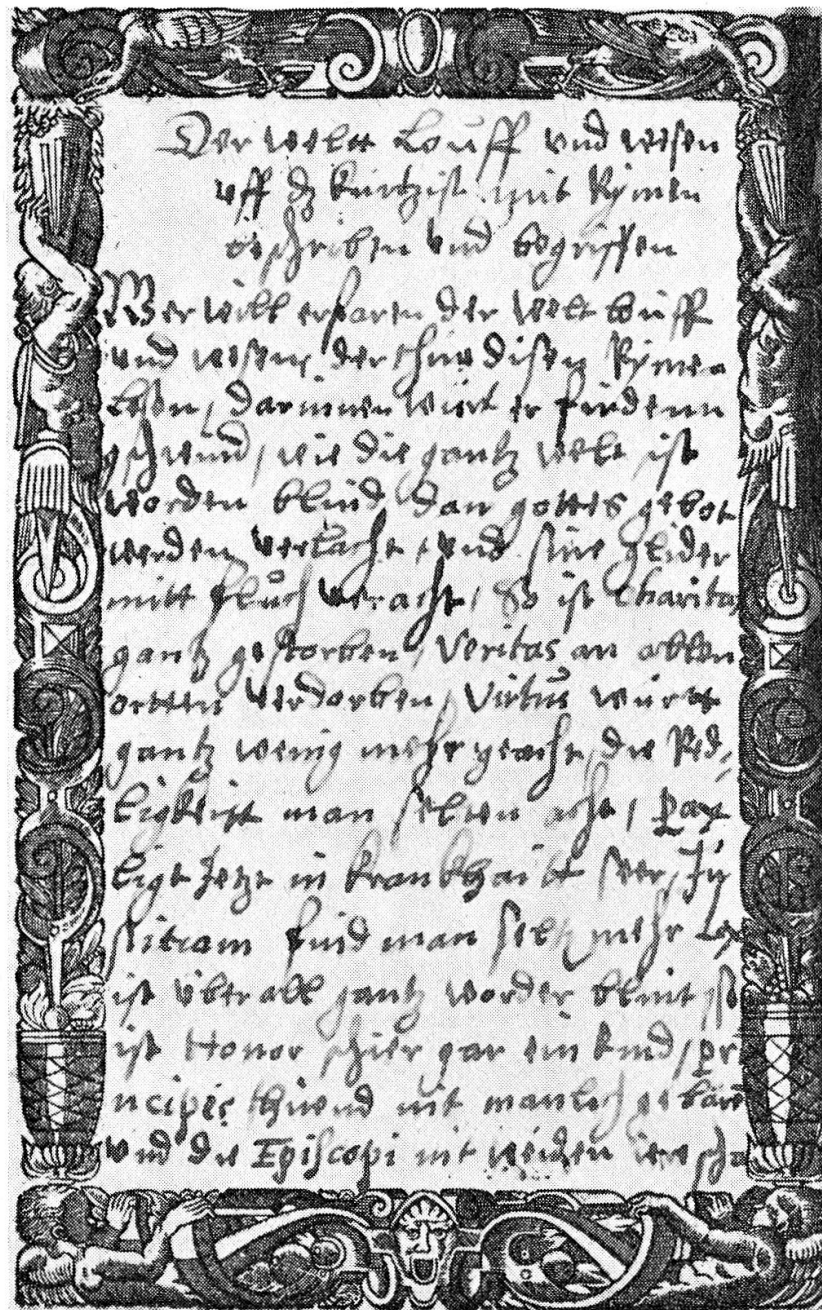 Der weltt Louff vnd wesen
vff dz kürtzist mit Rÿmen
beschriben vnd begriffen
Wer will erfaren der welt louff
vnd wesen, der thüe disen Rÿmen
lesen, darinnen würt er findenn
gschwind, wie die gantz welt ist
worden blind, dan gottes gebot
werden verlacht, vnd sine glider
mitt fluch veracht, So ist Charitas
gantz gestorben, Veritas an allen
ortten verdorben, Virtus württ
gantz wenig mehr geacht, die Red-
ligkeitt man selten acht, Pax
ligt Jetzt in kranckhaitt seer, Ju
stitiam find man seltz mehr Lex
ist überall gantz worden blint so
ist Honor schier gar ein kind, Pri
ncipes thüend nit manlich gebären
vnd die Episcopi nit weichen